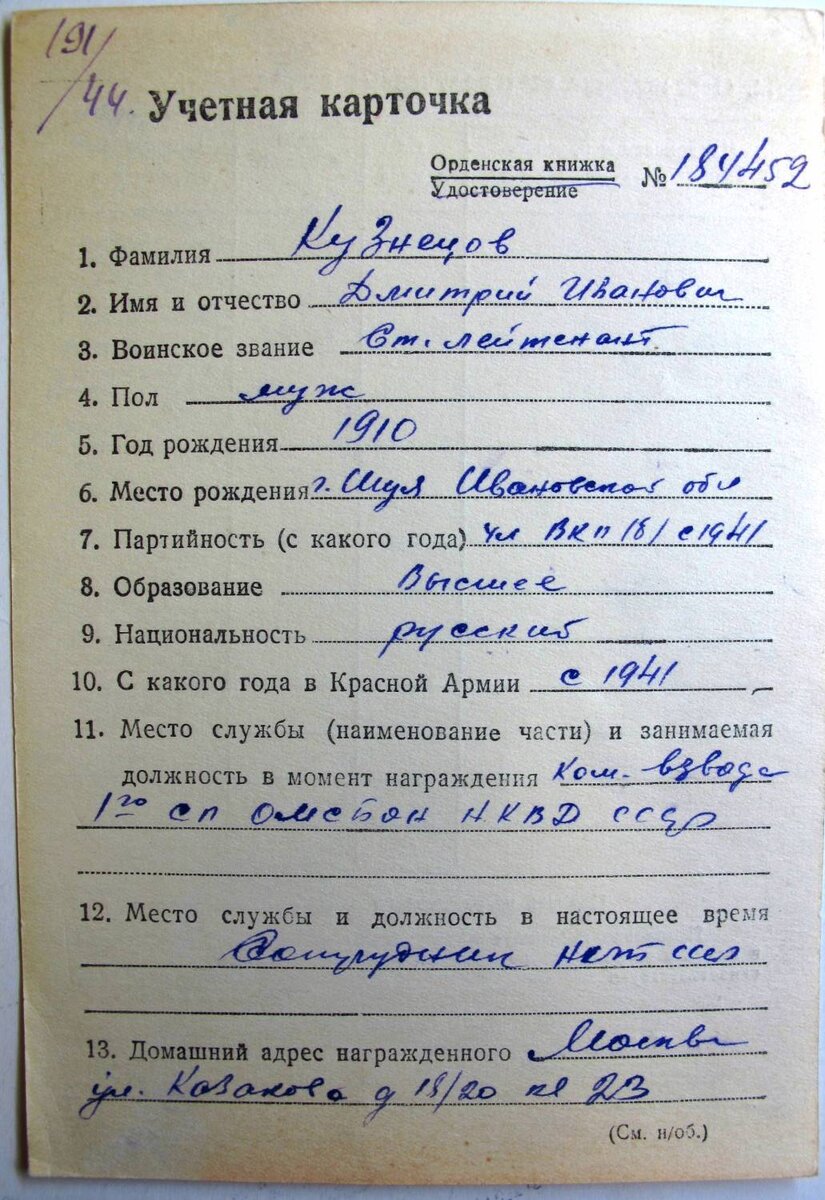 191/44.
Учетная карточка
Орденская книжка
Удостоверение
№ 184452
1. Фамилия Кузнецов
2. Имя и отчество Дмитрий Иванович
3. Воинское звание Ст. лейтенант
4. Пол муж
5. Год рождения 1910
6. Место рождения г. Шуя Ивановской обл
7. Партийность (с какого года) чл ВКП/б/ с 1941
8. Образование Высшее
9. Национальность русский
10. С какого года в Красной Армии с 1941
11. Место службы (наименование части) и занимаемая
должность в момент награждения Ком. взвода
1го сп ОМСБОН НКВД СССР
12. Место службы и должность в настоящее время
Сотрудник
13. Домашний адрес награжденного Москва
ул. Казакова д 18/20 кв 23
(См. н/об.)